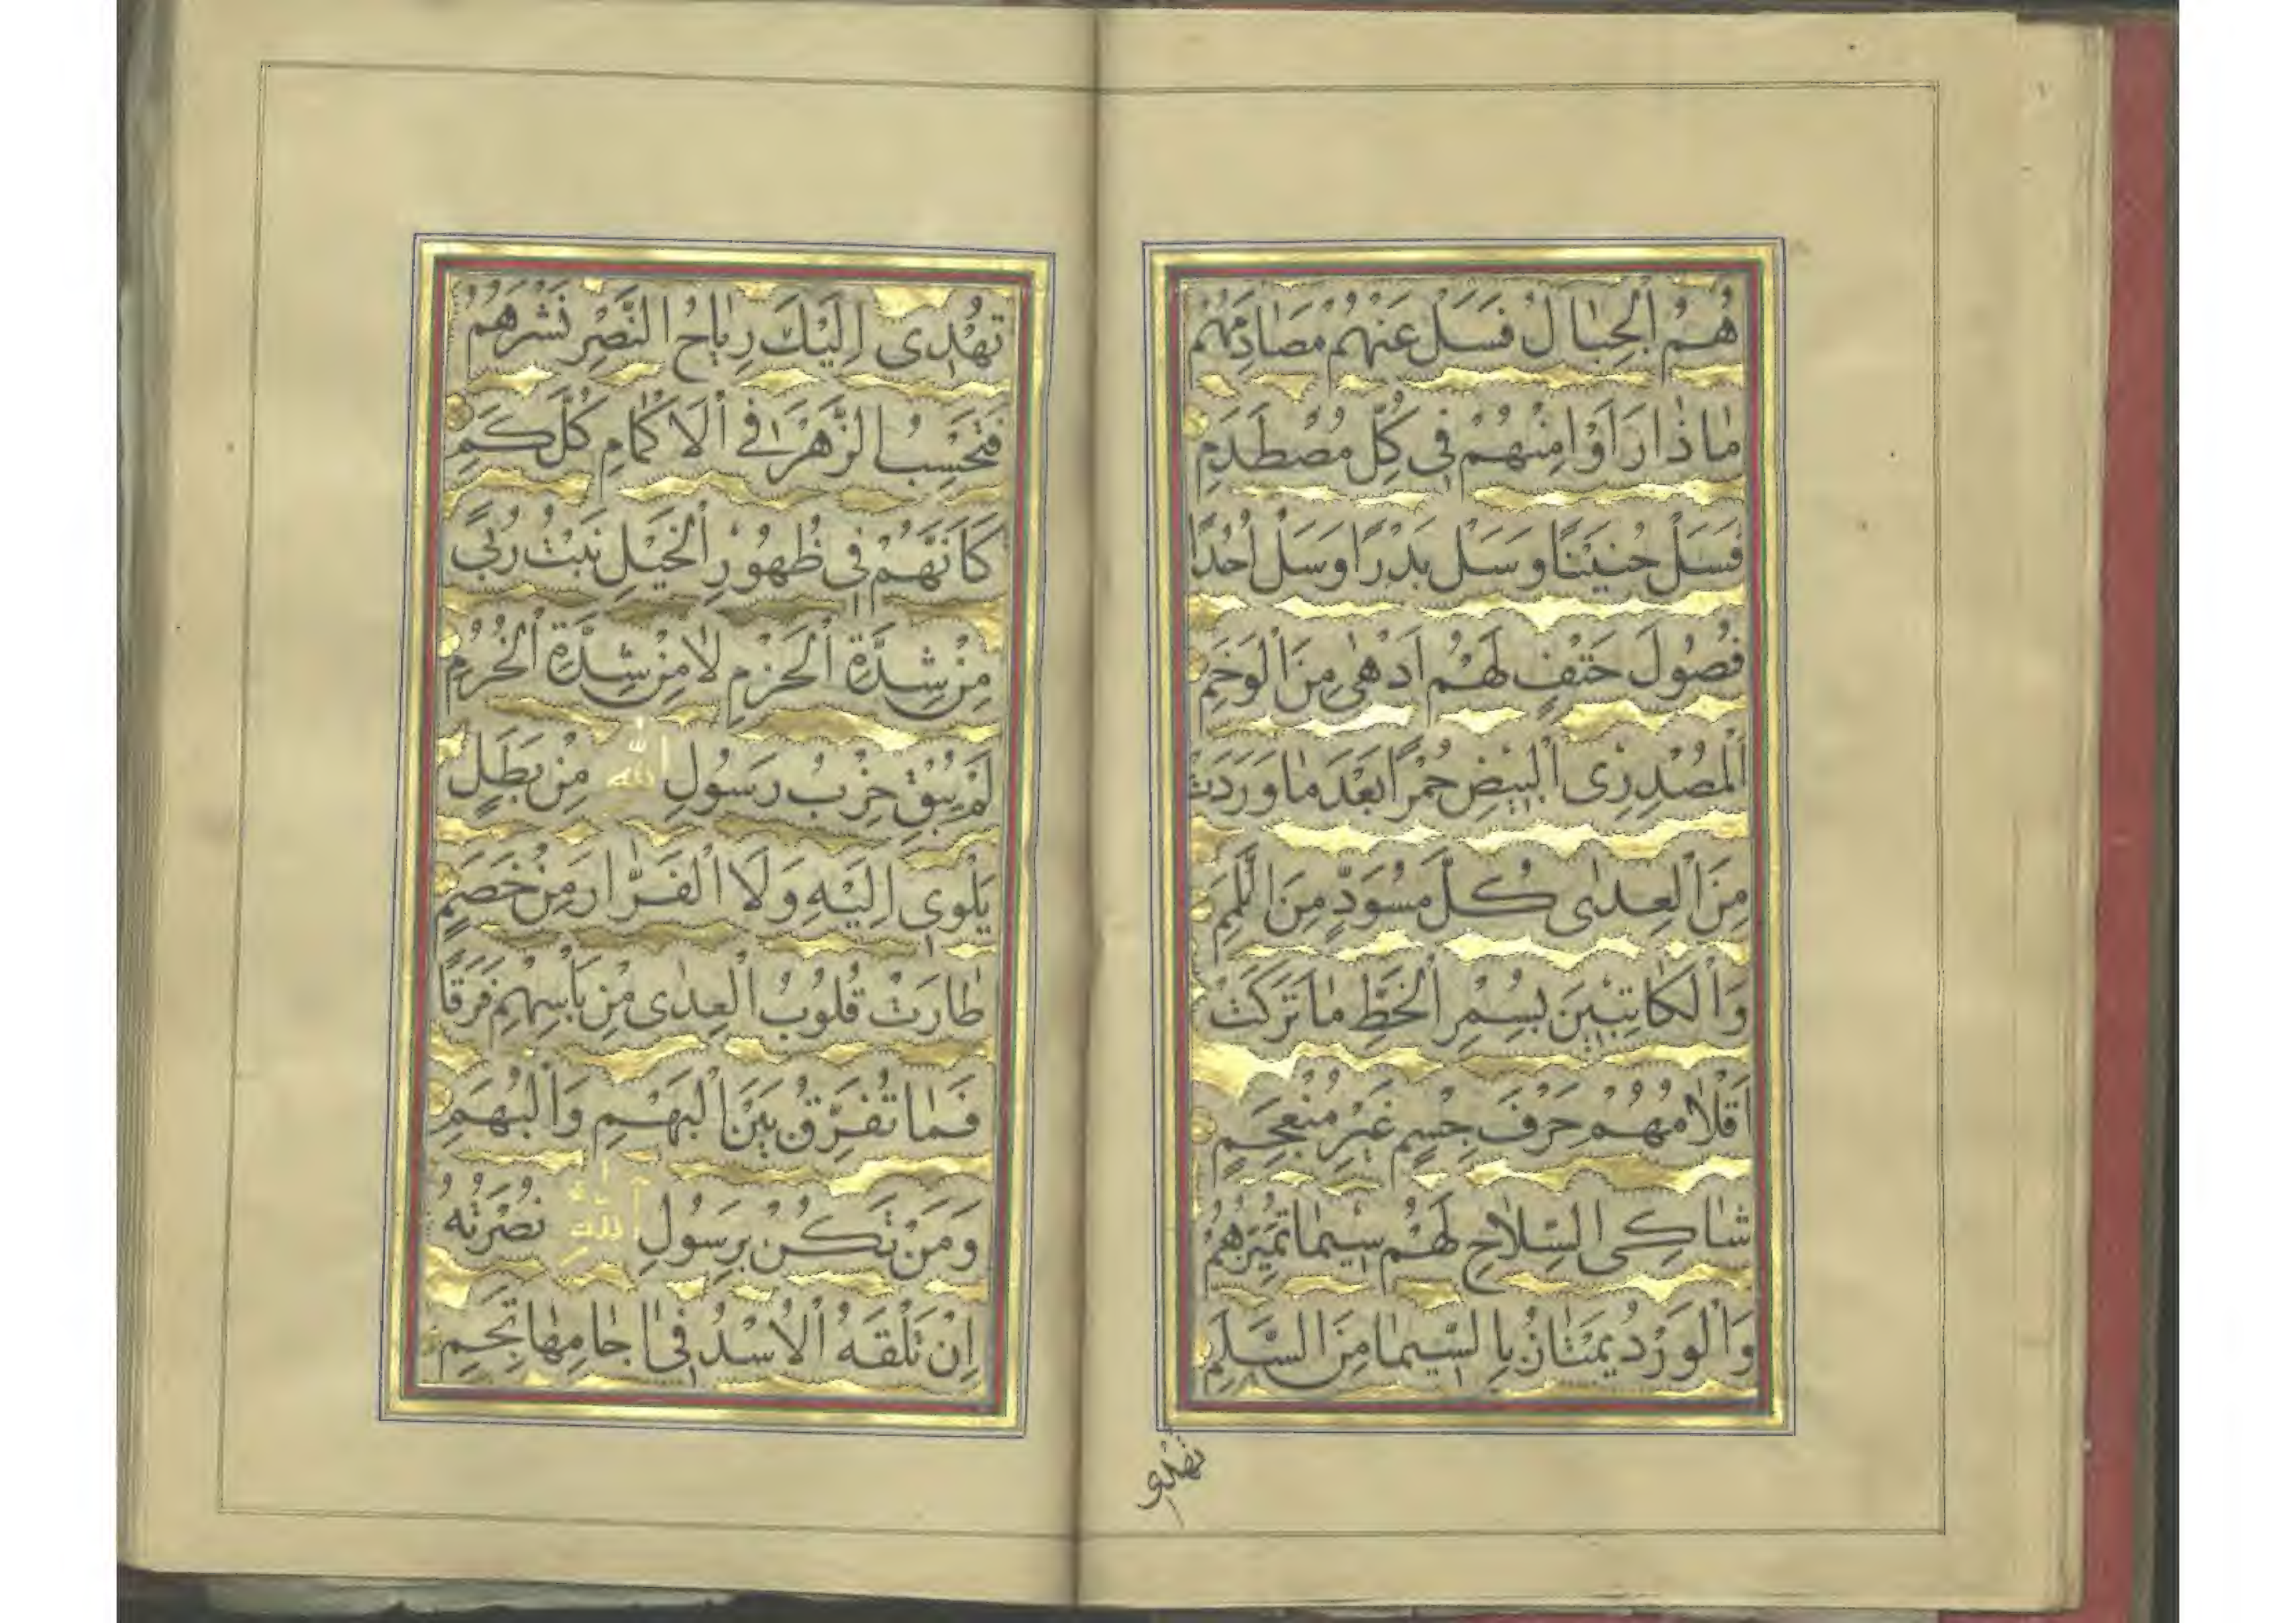 هُمُ الْجِبَالُ فَسَلْ عَنْهُمْ مُصَادِمَهُمْ
مَاذَا رَاَوْا مِنْهُمْ فِي كُلِّ مُصْطَدَمِ
فَسَلْ حُنَيْنًا وَسَلْ بَدْرًا وَسَلْ اُحُدًا
فُصُولَ حَتْفٍ لَهُمْ اَدْهٰى مِنَ الْوَخَمِ
اَلْمُصْدِرِى الْبِيْضِ حُمْرًا بَعْدَ مَا وَرَدَتْ
مِنَ الْعِدٰى كُلَّ مُسْوَدٍّ مِنَ اللِّمَمِ
وَالْكَاتِبِيْنَ بِسُمْرِ الْخَطِّ مَا تَرَكَتْ
اَقْلَامُهُمْ حَرْفَ جِسْمٍ غَيْرَ مُنْعَجِمٍ
شَاكِى السِّلَاحِ لَهُمْ سِيْمَا تُمَيِّزُهُمْ
وَالْوَرْدُ يَمْتَازُ بِالسِّيْمَا مِنَ السَّلَمِ
تهدى
تُهْدِى اِلَيْكَ رِيَاحُ النَّصْرِ نَشْرَهُمُ
فَتَحْسِبُ الزَّهْرَ فِي الْاَكْمَامِ كُلَّ كَمِ
كَاَنَّهُمْ فِي ظُهُوْرِ الْخَيْلِ نَبْتُ رُبًى
مِنْ شِدَّةِ الْحَزْمِ لَا مِنْ شِدَّةِ الْحُزُمِ
لَمْ يُبْقِ حِزْبُ رَسُولِ اللّٰهِ مِنْ بَطَلٍ
يَلْوِى اِلَيْهِ وَلَا الْفَرَّارَ مِنْ خَصَمٍ
طَارَتْ قُلُوْبُ الْعِدٰى مِنْ بَاْسِهِمْ فَرَقًا
فَمَا تُفَرِّقُ بَيْنَ الْبَهْمِ وَالْبُهَمِ
وَمَنْ تَكُنْ بِرَسُولِ اللّٰهِ نُصْرَتُهُ
اِنْ تَلْقَهُ الْاُسْدُ فِى اٰجَامِهَا تَجِمِ